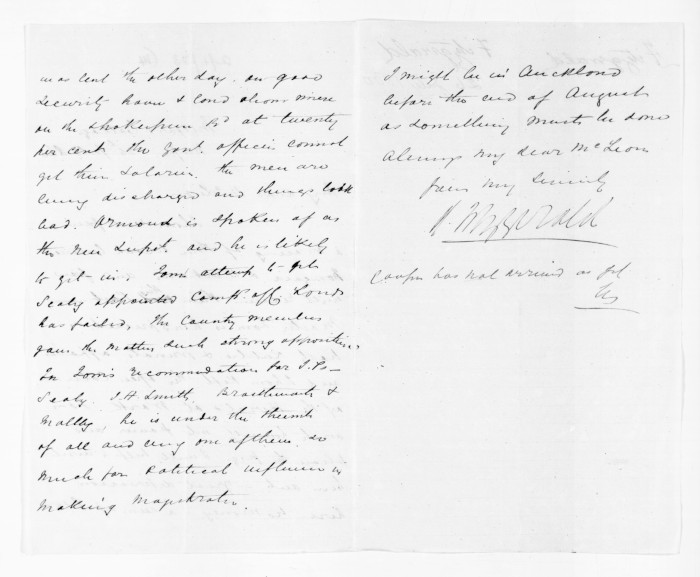 was lent the other day on good
security house & land
on the Shakespeare Rd at twenty
per cent the Govt. officers cannot
get their Salaries. the men are
being discharged and things look
bad. Ormond is spoken of as
the new Supt. and he is likely
to get in. Tom's attempt to get
Sealy appointed Commr. of Lands
has failed, the County members
gave the matter such strong opposition
In Tom's recommendation for J.Ps—
Sealy. J.A Smith. Braithwaite &
Maltby he is under the thumb
of all and every one of them. so
much for Political influence in
making Magistrates.
I might be in Auckland
before the end of August
as something must be done
always my dear McLean
yours very sincerely
Fitzgerald
Cooper has not arrived as yet